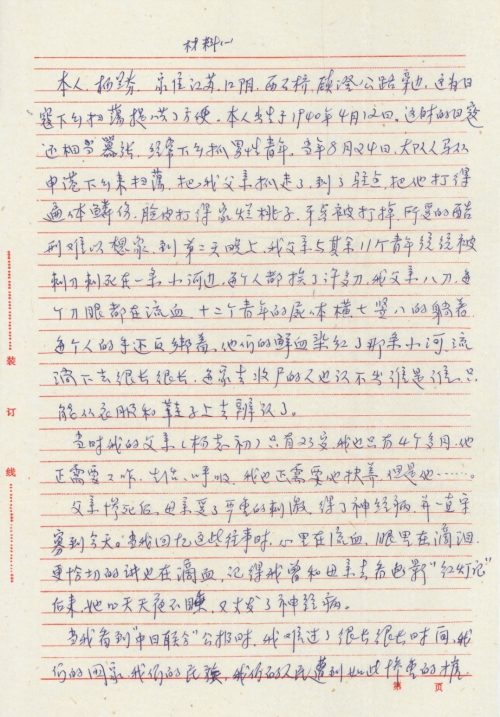 材料(一)
本人杨 芬，家住江苏江阴西石桥，镇澄公路旁边，这为日
寇下乡扫荡提供了方便。本人出生于1940年4月12日。这时的日寇
还相当嚣张，经常下乡抓男性青年。当年8月24日，大队人马从
申港下乡来扫荡，把我父亲抓走了，到了驻点，把他打得
遍体鳞伤，脸皮打得象烂桃子，牙齿被打掉，所受的酷
刑难以想象，到第二天晚上，我父亲与其余11个青年统统被
刺刀刺死在一条小河边，每个人都挨了许多刀，我父亲八刀，每
个刀眼都在流血，十二个青年的尸体横七竖八的躺着，
每个人的手还反绑着，他们的鲜血染红了那条小河，流
淌下去很长很长，每家去收尸的人也认不出谁是谁，只
能从衣服和鞋子上去辨认了。
当时我的父亲(杨志初)只有23岁，我也只有4个多月，他
正需要工作、生活、呼吸，我也正需要他扶养，但是他……。
父亲惨死后，母亲受了严重的刺激，得了神经病，并一直守
寡到今天。当我回忆这些往事时，心里在流血，眼里在滴泪，
更恰切的讲也在滴血，记得我曾和母亲去看电影“红灯记”
后来，她几天天夜不睡，又大发了神经病。
当我看到“中日联合”公报时，我难过了很长很长时间，我
们的国家，我们的民族，我们的人民遭到如此惨重的摧
第 页
装
订
线